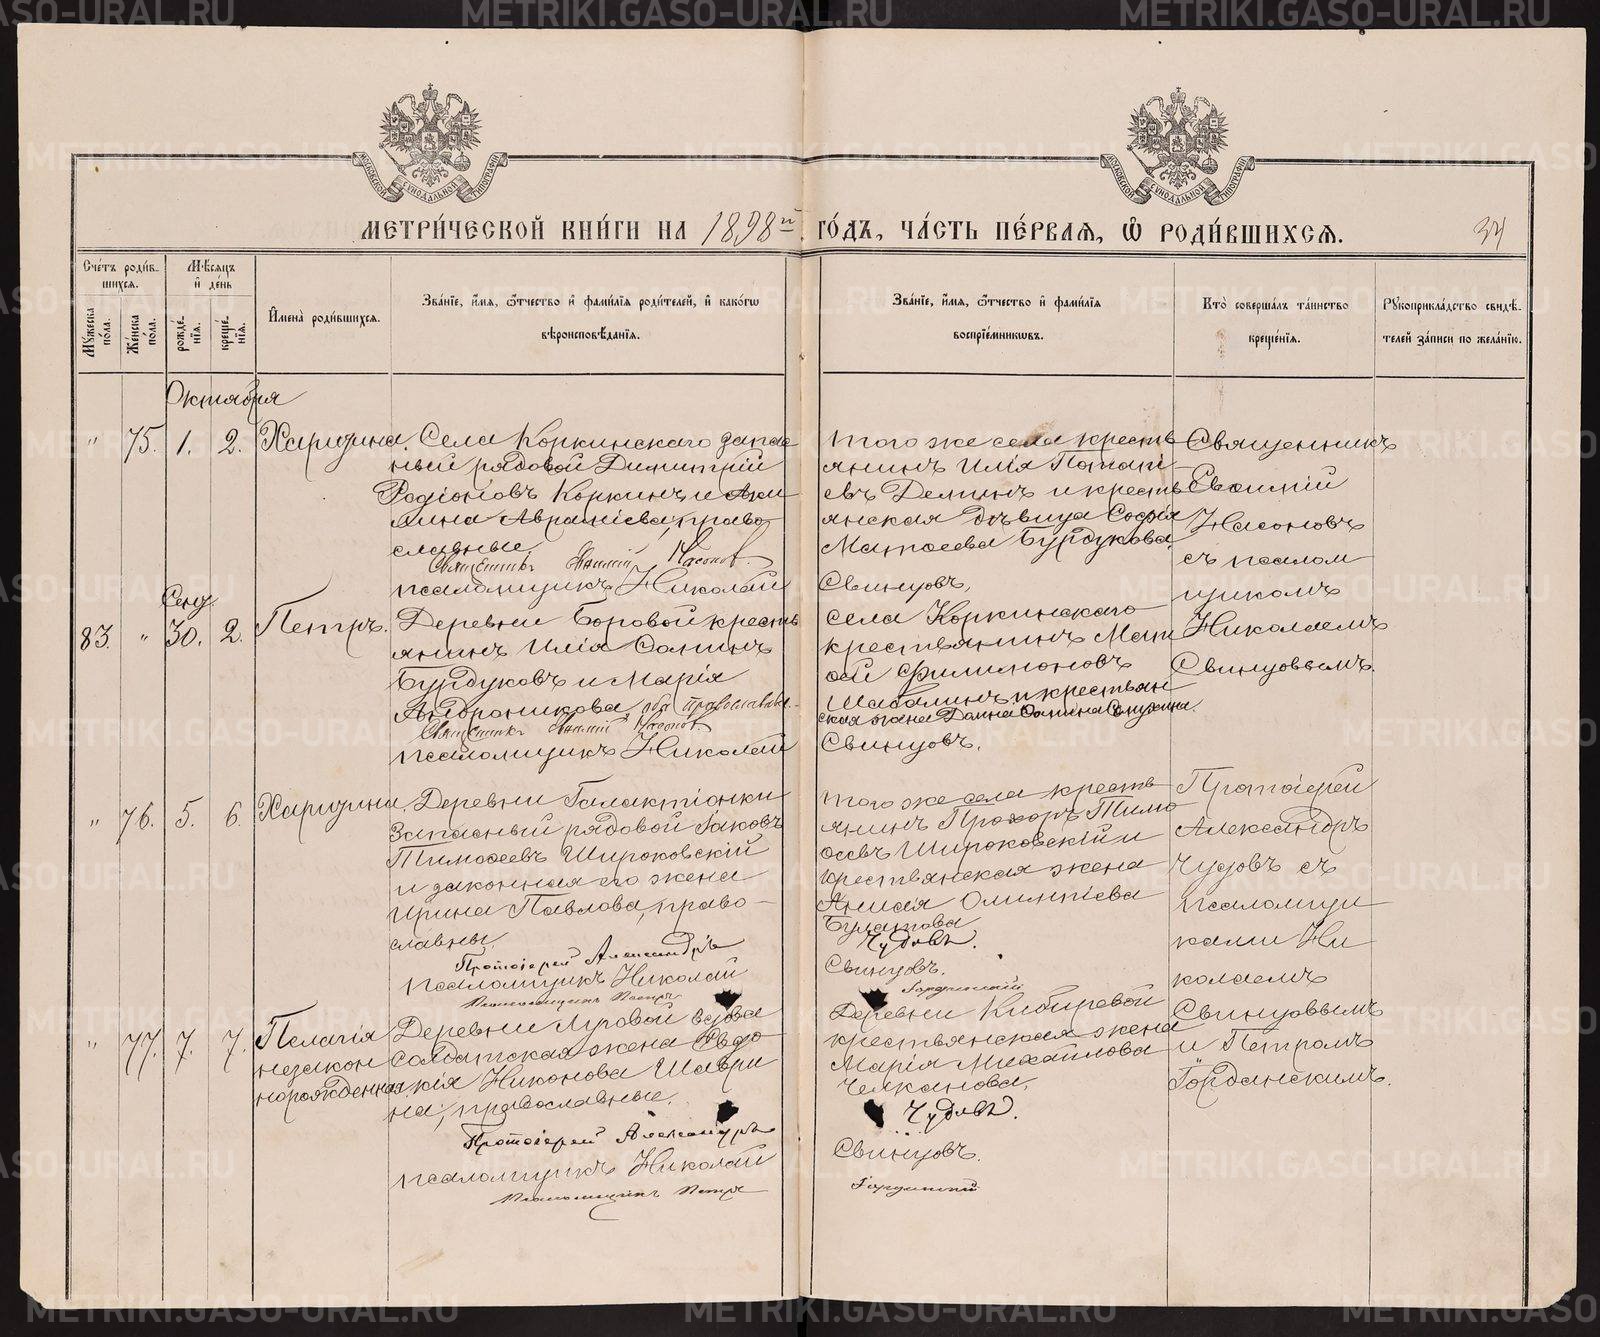 МЕТРИ́ЧЕСКОЙ КНИ́ГИ НА 1898й ГО́ДЪ, ЧА́СТЬ ПЕ́РВАЯ, Ѡ РОДИ́ВШИХСЯ.
34
Сче́тъ роди́вшихся.
Мꙋ́жеска по́ла.
Же́нска по́ла.
Мѣ́сяцъ и҆ де́нь
рожде́нїя.
креще́нїя.
И҆мена̀ роди́вшихся.
Зва́нїе, и҆́мя, ѻ҆́тчество и҆ фами́лїя роди́телей, и҆ како́гѡ
вѣроисповѣ́данїя.
Зва́нїе, и҆́мя, ѻ҆́тчество и҆ фами́лїя
воспрїе́мникѡвъ.
Кто̀ соверша́лъ та́инство
креще́нїя.
Рꙋкоприкла́дство свидѣ́-
телей за́писи по жела́нїю.
Октября
" 75. 1. 2. Харитина.
Села Коркинскаго запас
ный рядовой Димитрій
Родіоновъ Коркинъ и Аки
лина Авраміева, право
славные.
Священникъ Евѳимій Насонов.
псаломщикъ Николай
того же села кресть
янинъ Илія Потапі-
евъ Деминъ и кресть
янская дѣвица Софія
Матѳеева Бурдукова.
Свинцовъ.
Священникъ
Евѳимій
Насоновъ
съ псалом
щикомъ
Николаемъ
Свинцовымъ.
Сент.
83. " 30. 2. Петръ.
Деревни Боровой кресть
янинъ Илія Саминъ
Бурдуковъ и Марія
Андроникова, оба православн.
Священникъ Евѳимій Насонов
псаломщикъ Николай
села Коркинскаго
крестьянинъ Мат
ѳей Филимоновъ
Шабалинъ и крестьян
ская жена
Свинцовъ.
" 76. 5. 6. Харитина.
Деревни Галактіонки
Запасный рядовой Іаковъ
Тимоѳеевъ Широковскій
и законная его жена
Ирина Павлова, право-
славны.
Протоіерей Александръ
псаломщикъ Николай
Псаломщикъ Петръ
того же села кресть
янинъ Прохоръ Тимо
ѳеевъ Широковскій и
крестьянская жена
Анисія Олимпіева
Булатова
Чудовъ.
Свинцовъ.
Горданскій
Протоіерей
Александръ
Чудовъ съ
псаломщи
ками Ни
колаемъ
Свинцовымъ
и Петромъ
Горданскимъ.
" 77. 7. 7. Пелагія
незакон
норожденная
Деревни Луговой вдова
солдатская жена Евдо
кія Никонова Шаври
на, православные.
Протоіерей Александръ
псаломщикъ Николай
Псаломщикъ Петръ
Деревни Кибиревой
крестьянская жена
Марія Михайлова
Челканова.
Чудовъ.
Свинцовъ.
Горданскій
METRIKI.GASO-URAL.RU